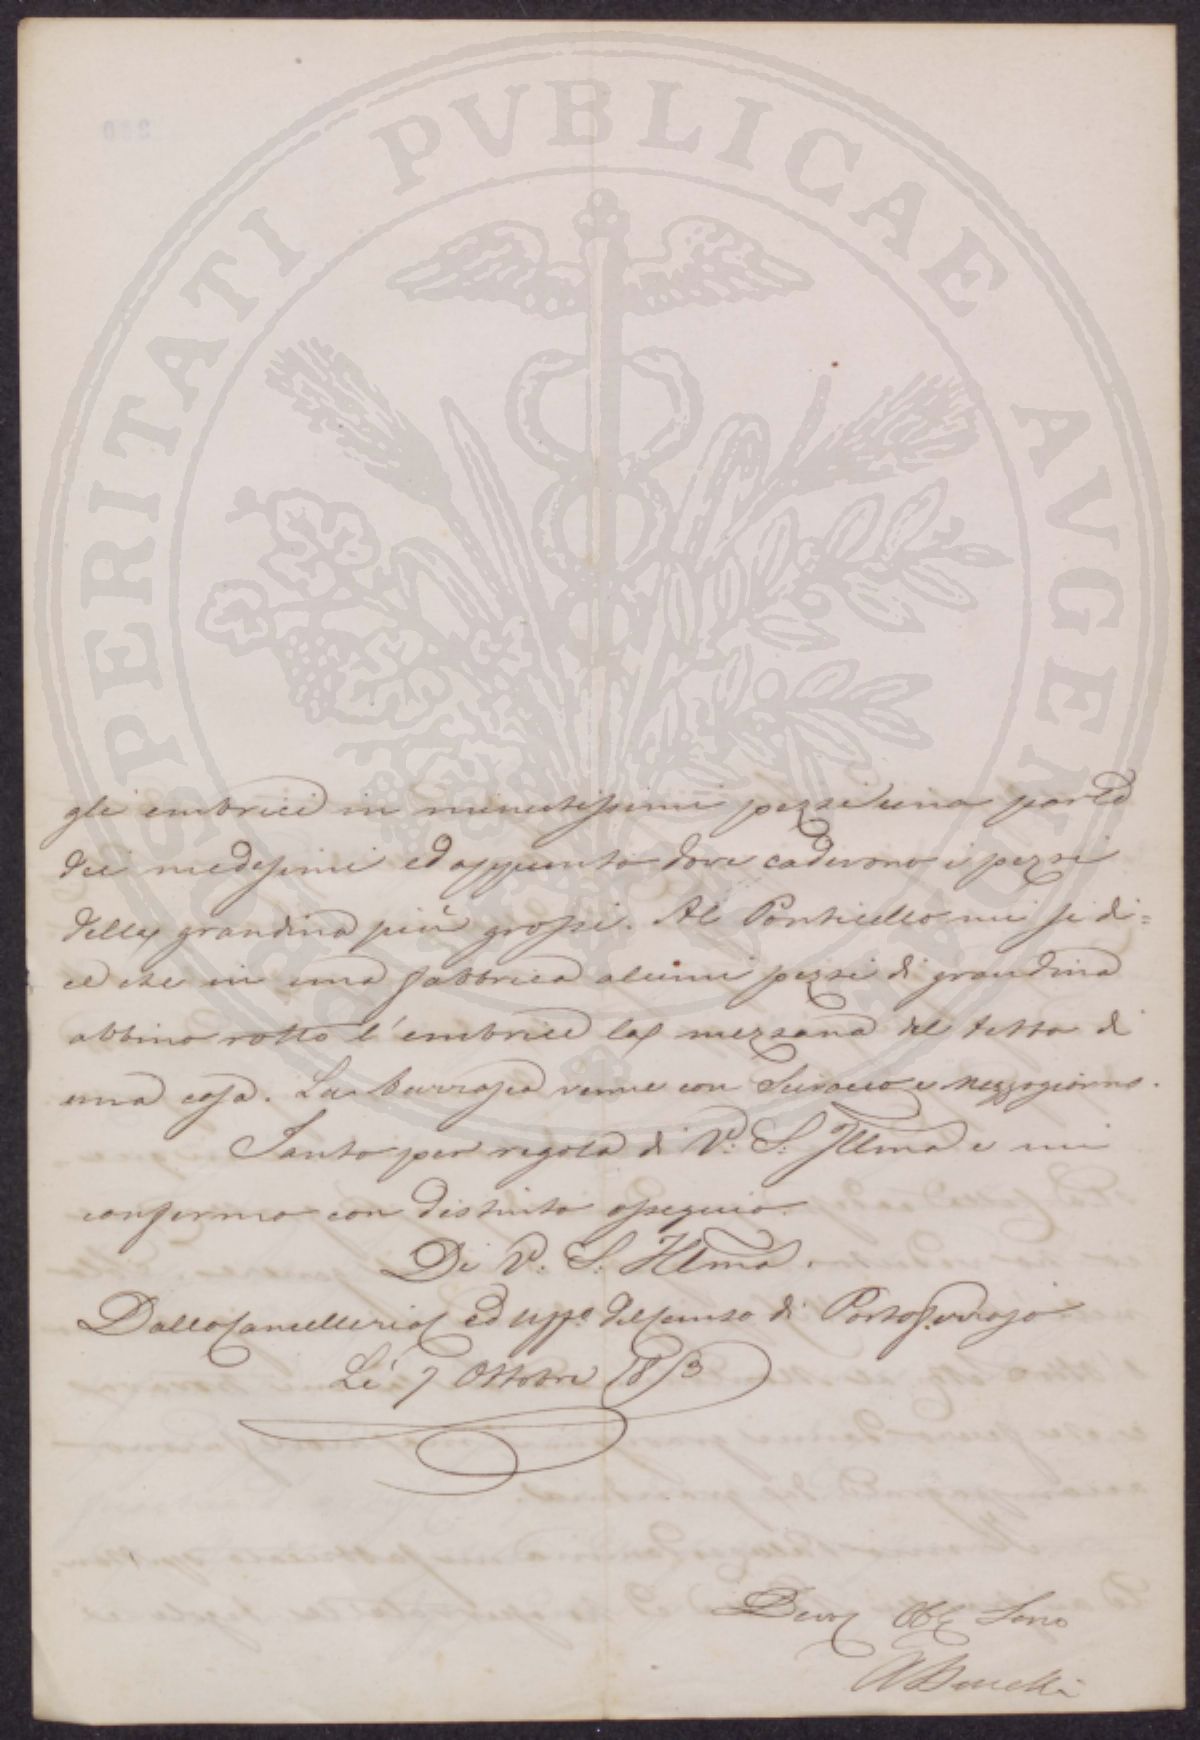 PROSPERITATI PVBLICAE AVGENDAE
gli embrici in minutissimi pezzi una parte
dei medesimi ed appunto dove cadevono i pezzi
della grandina più grossi. Al Ponticello mi si di=
ce che in una fabbrica alcuni pezzi di grandina
abbino rotto l'embrice la mezzana del tetto di
una casa. La burrasca venne con Scirocco e mezzogiorno.
Tanto per regola di V: S: Illma e mi
confermo con distinto ossequio.
Di V: S: Illma.
Dalla Cancelleria ed Uffo. del Censo di Portoferrajo
Li 7 Ottobre 1853
Devo Obb Servo